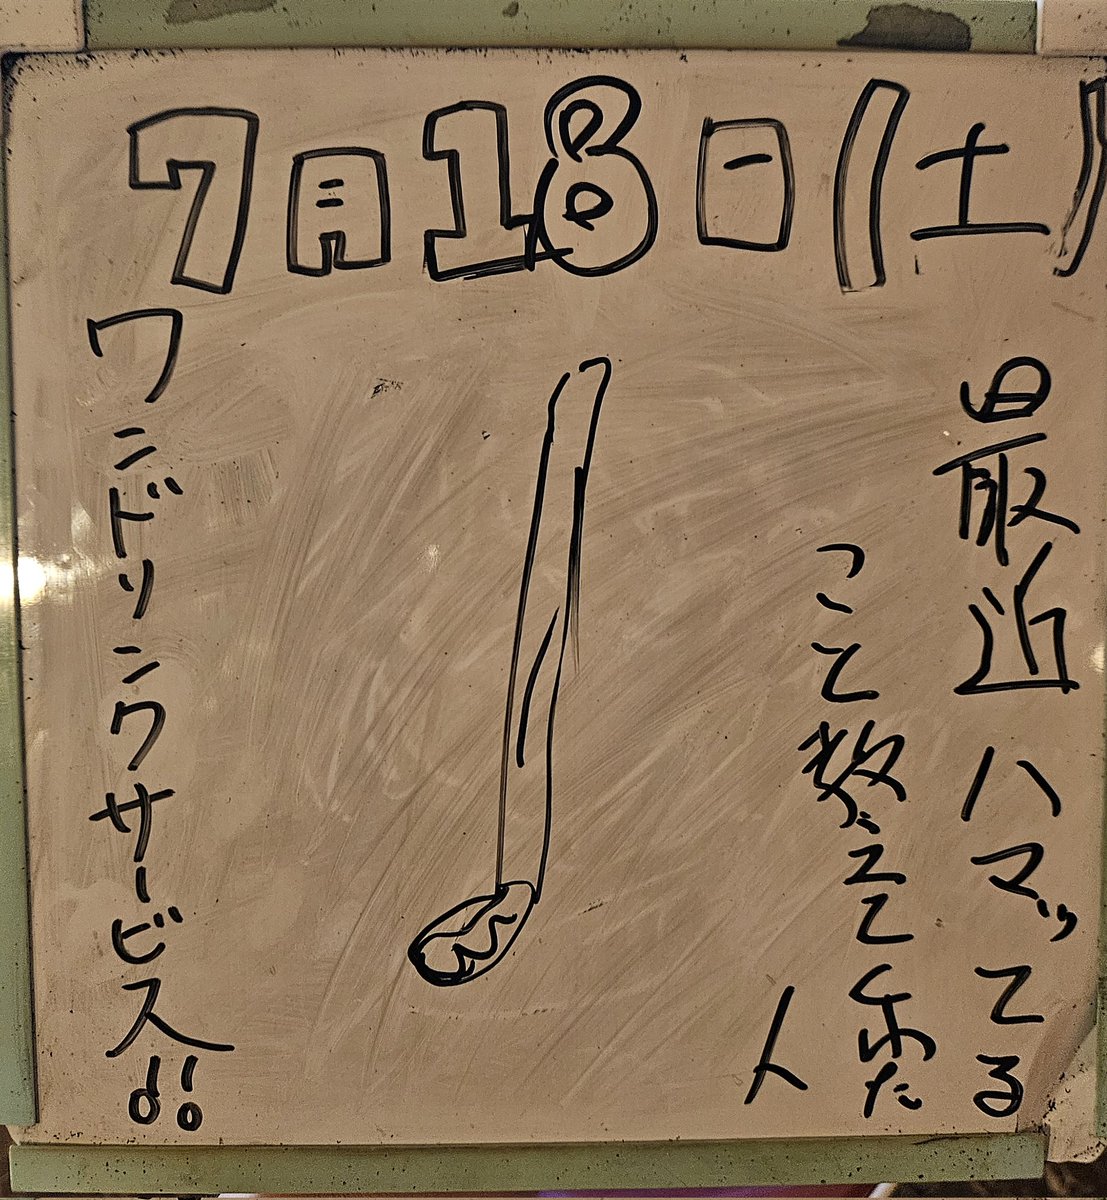 7月18日(土)
最近ハマッてる
こと教えてくれた
人
ワンドリンクサービス!!